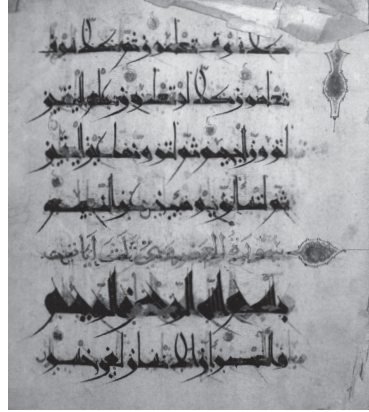 كلا سوف تعلمون ثم كلا سوف
تعلمون كلا لو تعلمون علم اليقين
لترون الجحيم ثم لترونها عين اليقين
ثم لتسئلن يومئذ عن النعيم
سورة العصر وهي ثلث ايات
بسم الله الرحمن الرحيم
والعصر ان الانسان لفي خسر